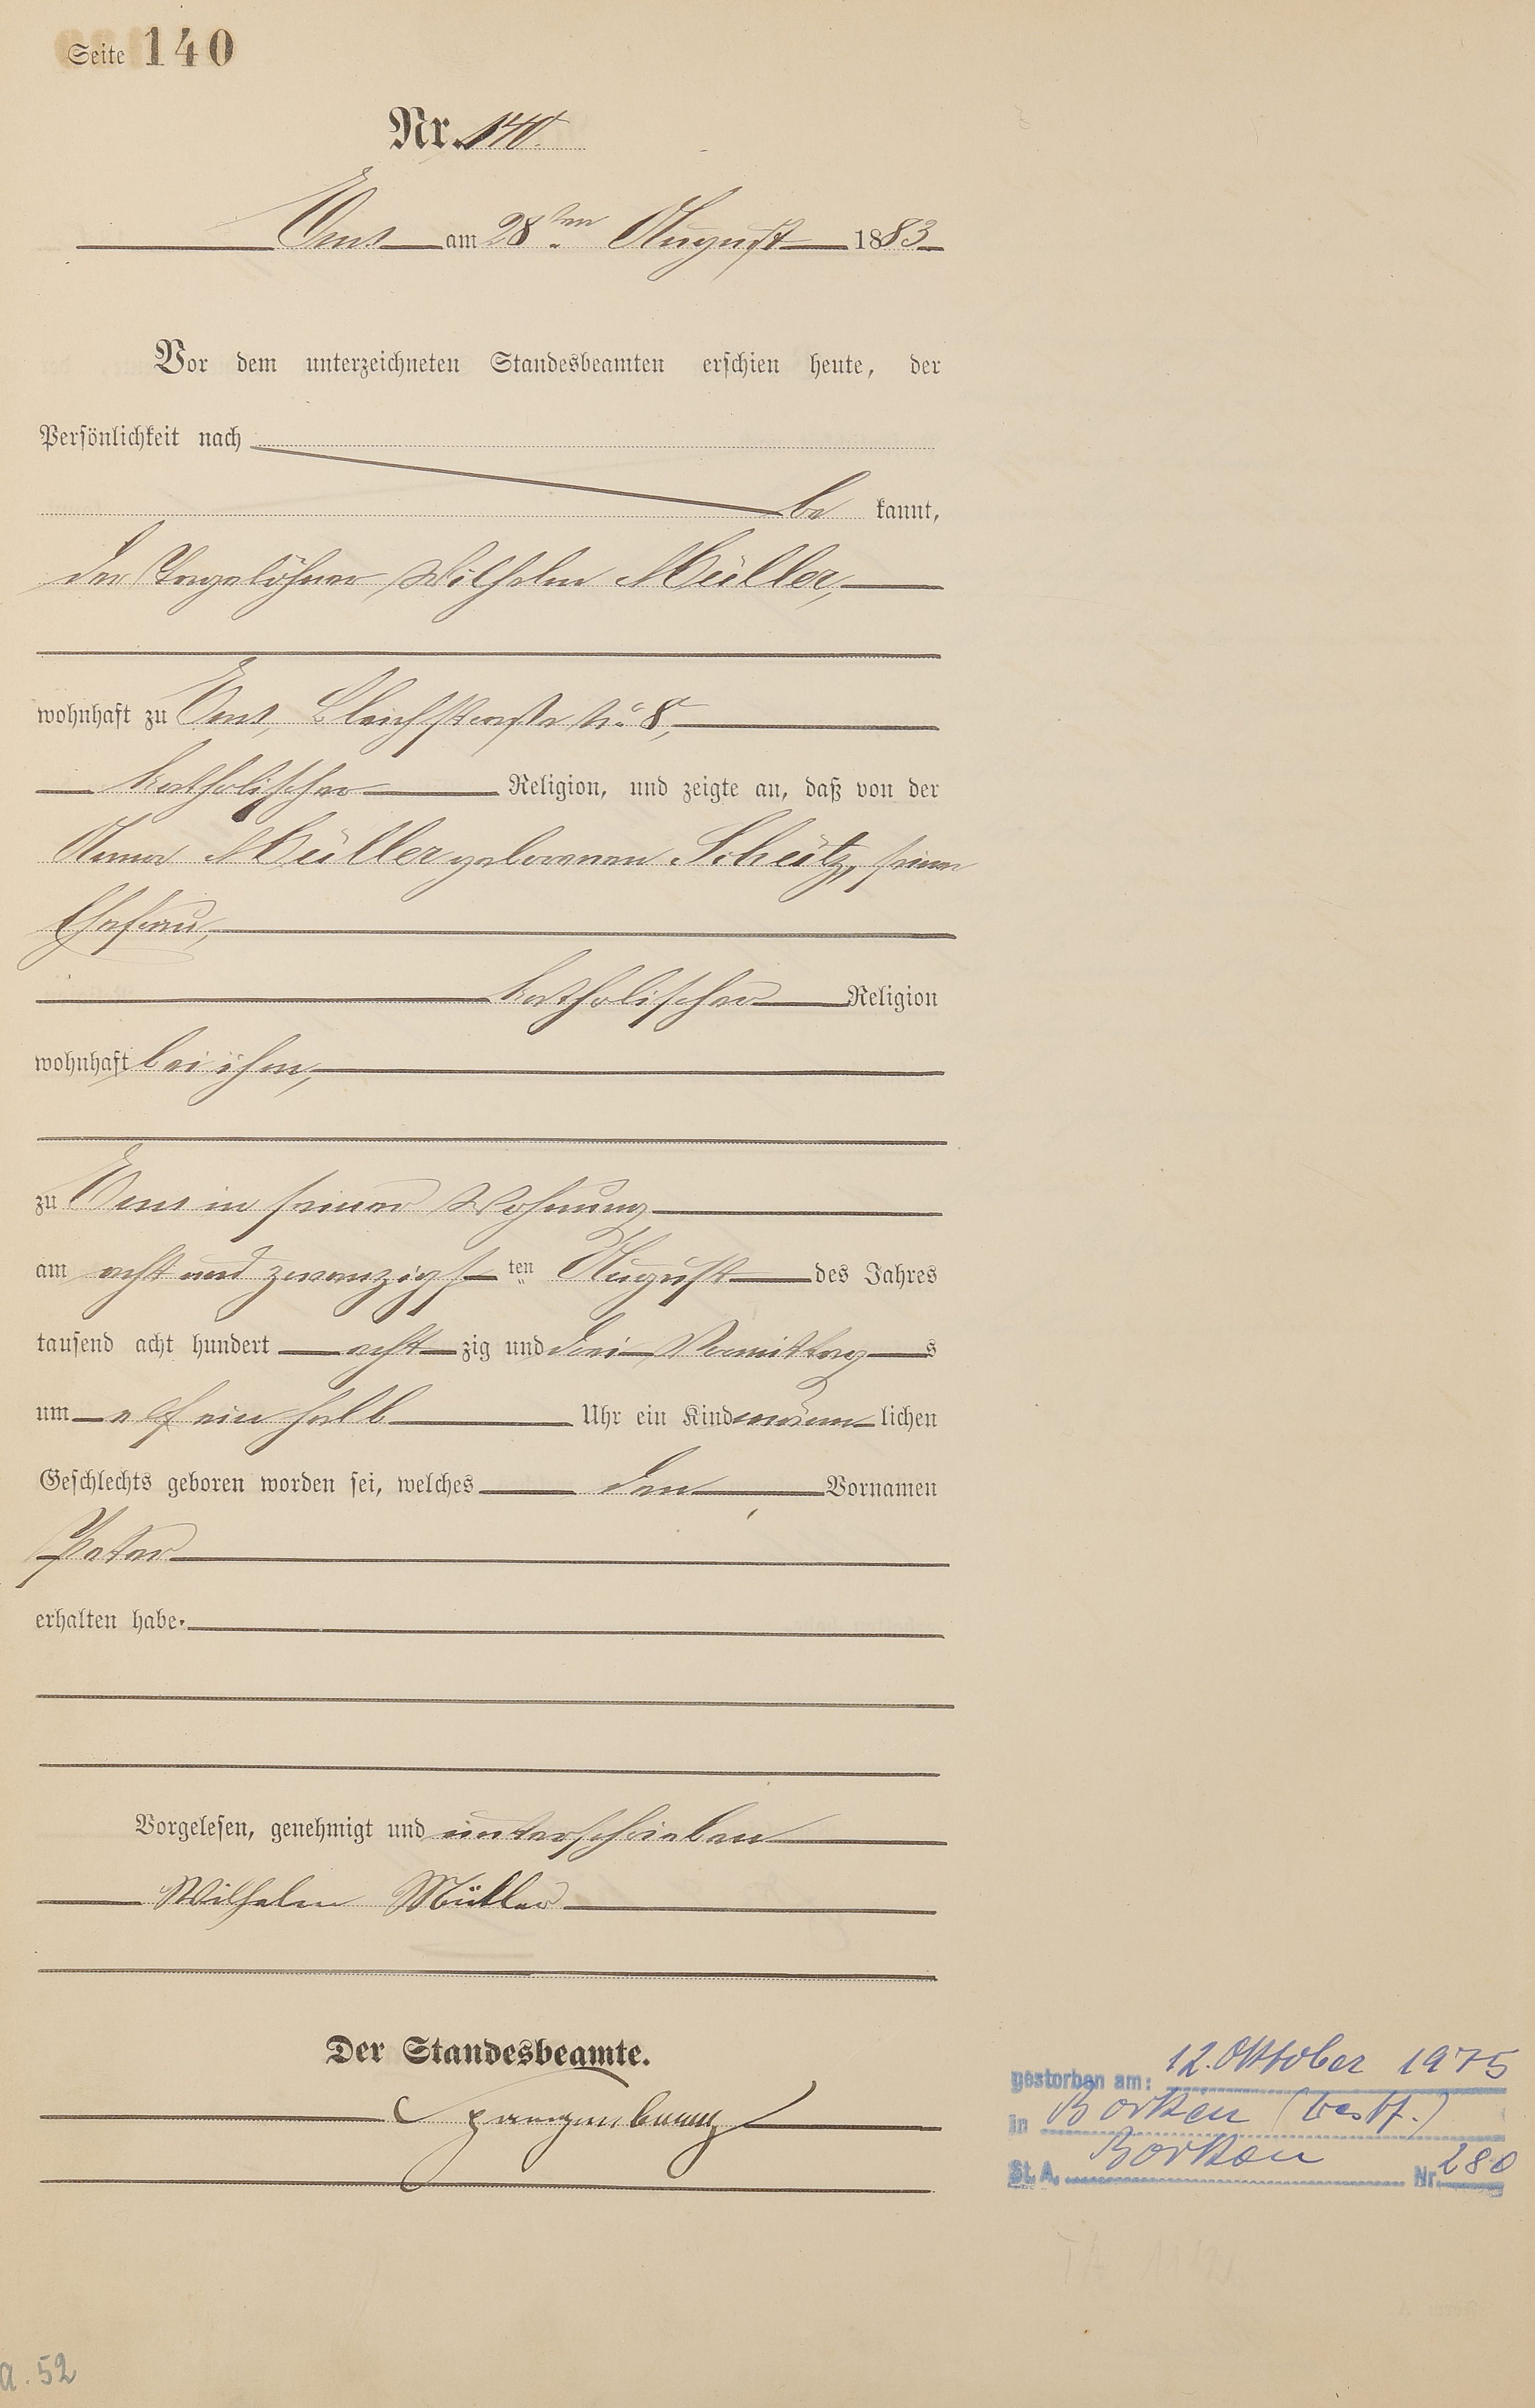 Seite 140
Nr. 140.
Ems am 28ten August 1883
Vor dem unterzeichneten Standesbeamten erschien heute, der
Persönlichkeit nach
be kannt,
der Tagelöhner Wilhelm Müller,
wohnhaft zu Ems, Bleichstraße No 8,
katholischer Religion, und zeigte an, daß von der
Anna Müller geborenen Scheitz, seiner
Ehefrau,
katholischer Religion
wohnhaft bei ihm,
zu Ems in seiner Wohnung
am acht und zwanzigs ten August des Jahres
tausend acht hundert acht zig und drei Vormittag s
um elf ein halb Uhr ein Kind männ lichen
Geschlechts geboren worden sei, welches den Vornamen
Peter
erhalten habe.
Vorgelesen, genehmigt und unterschrieben
Wilhelm Müller
Der Standesbeamte.
Spangenberg
gestorben am: 12. Oktober 1975
in Borken (Westf.)
St. A. Borken Nr. 280
a. 52